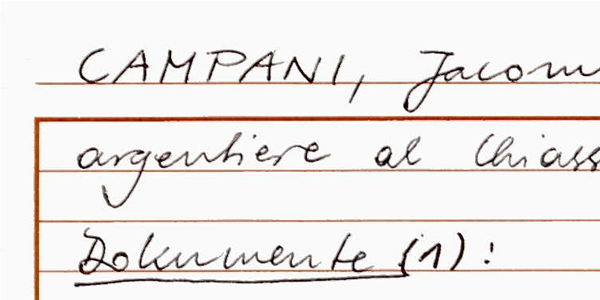 CAMPANI, Jacom
argentiere al Chiass
Dokumente (1):